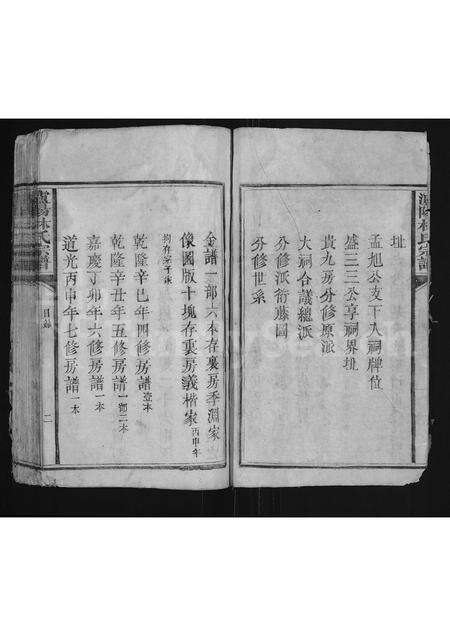 址
孟旭公支丁入祠牌位
盛三三公享祠界址
貴九房分修原派
大祠合議總派
分修派衍藤圖
分修世系
全譜一部六本存裏房季淵家
像圖版十塊存裏房義楷家丙申年
乾隆辛巳年四修房譜壹本
乾隆辛丑年五修房譜一部二本
嘉慶丁卯年六修房譜一本
道光丙申年七修房譜一本
林氏宗譜
目錄
二
林氏宗譜